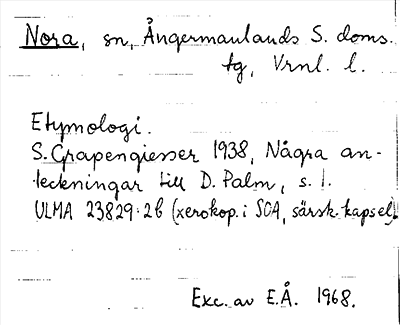 Nora, sn, Ångermanlands S. doms.
tg, Vrnl. l.
Etymologi.
S. Grapengiesser 1938, Några an-
teckningar till D. Palm, s. 1.
ULMA 23829:2b (xerokop. i SOA, särsk. kapsel).
Exc. av E.Å. 1968.